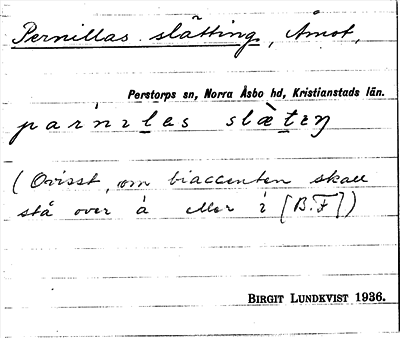 Pernillas slätting, Åmot,
Perstorps sn, Norra Åsbo hd, Kristianstads län.
pàrnɪlas slæ̀tɪŋ
(Ovisst, om biaccenten skall
stå över à eller ì [B.F])
BIRGIT LUNDKVIST 1936.